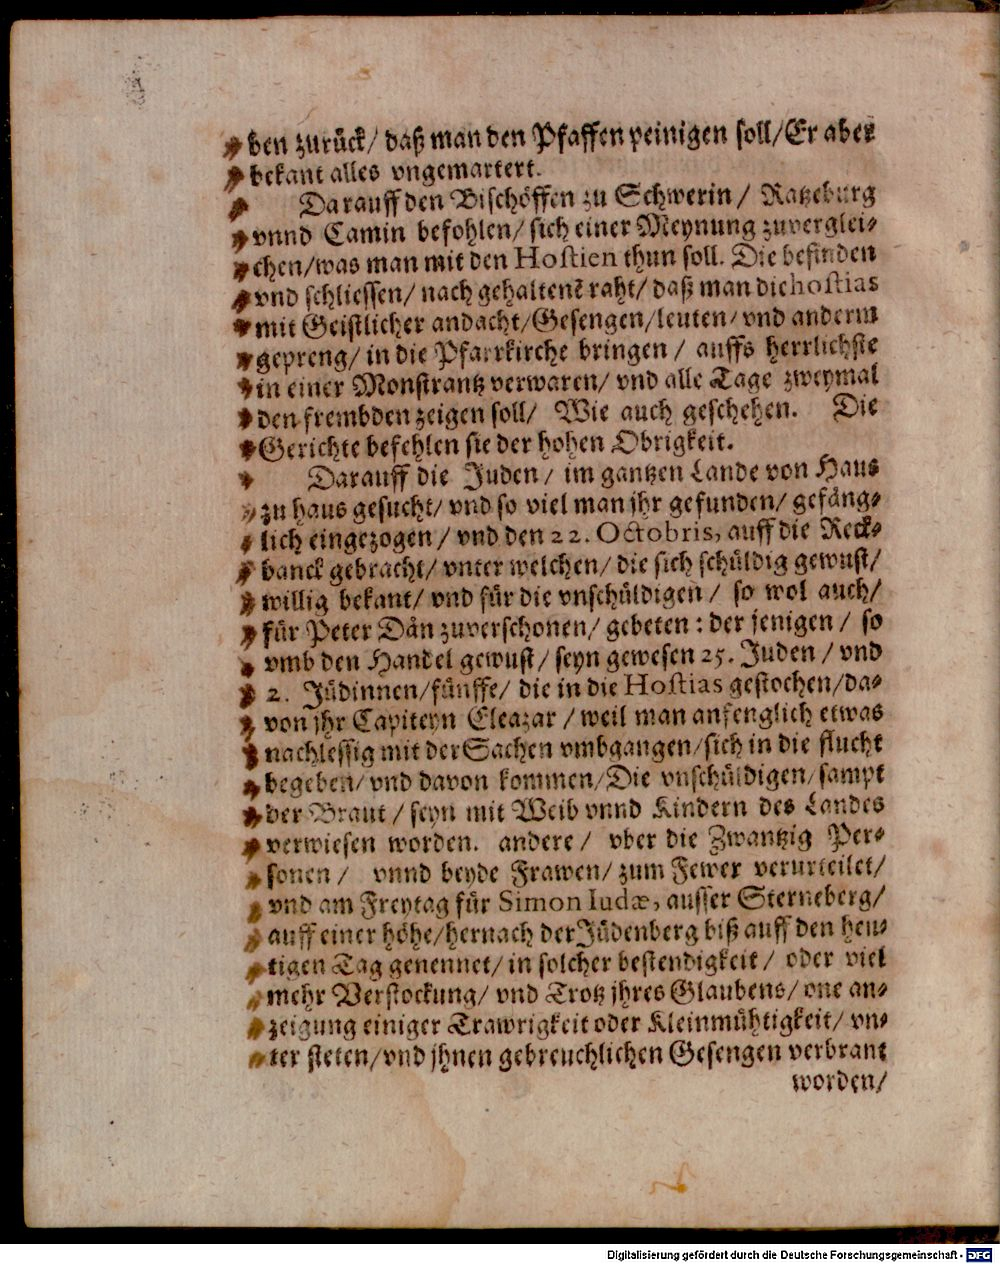 ben zurück/ daß man den Pfaffen peinigen soll/Er aber
bekant alles vngemartert.
Darauff den Bischöffen zu Schwerin/ Ratzeburg
vnnd Camin befohlen/ sich einer Meynung zuverglei-
chen/was man mit den Hostien thun soll. Die befinden
vnd schliessen/ nach gehaltenē raht/ daß man die hostias
mit Geistlicher andacht/Gesengen/leuten/ vnd anderm
gepreng/ in die Pfarrkirche bringen/ auffs herrlichste
in einer Monstrantz verwaren/ vnd alle Tage zweymal
den frembden zeigen soll/ Wie auch geschehen. Die
Gerichte befehlen sie der hohen Obrigkeit.
Darauff die Juden/ im gantzen Lande von Haus
zu haus gesucht/ vnd so viel man jhr gefunden/ gefäng-
lich eingezogen/ vnd den 22. Octobris, auff die Reck-
banck gebracht/ vnter welchen/ die sich schüldig gewust/
willig bekant/ vnd für die vnschüldigen/ so wol auch/
für Peter Dän zuverschonen/ gebeten: der jenigen/ so
vmb den Handel gewust/ seyn gewesen 25. Juden/ vnd
2. Jüdinnen/fünffe/ die in die Hostias gestochen/da-
von jhr Capiteyn Eleazar/weil man anfenglich etwas
nachlessig mit der Sachen vmbgangen/sich in die flucht
begeben/ vnd davon kommen/Die vnschüldigen/sampt
der Braut/ seyn mit Weib vnnd Kindern des Landes
verwiesen worden. andere/ vber die Zwantzig Per-
sonen/ vnnd beyde Frawen/ zum Fewer verurteilet/
vnd am Freytag für Simon Iudæ, ausser Sterneberg/
auff einer höhe/hernach der Jüdenberg biß auff den heu-
tigen Tag genennet/ in solcher bestendigkeit/ oder viel
mehr Verstockung/ vnd Trotz jhres Glaubens/ one an-
zeigung einiger Trawrigkeit oder Kleinmühtigkeit/ vn-
ter steten/vnd jhnen gebreuchlichen Gesengen verbrant
worden/
Digitalisierung gefördert durch die Deutsche Forschungsgemeinschaft - DFG